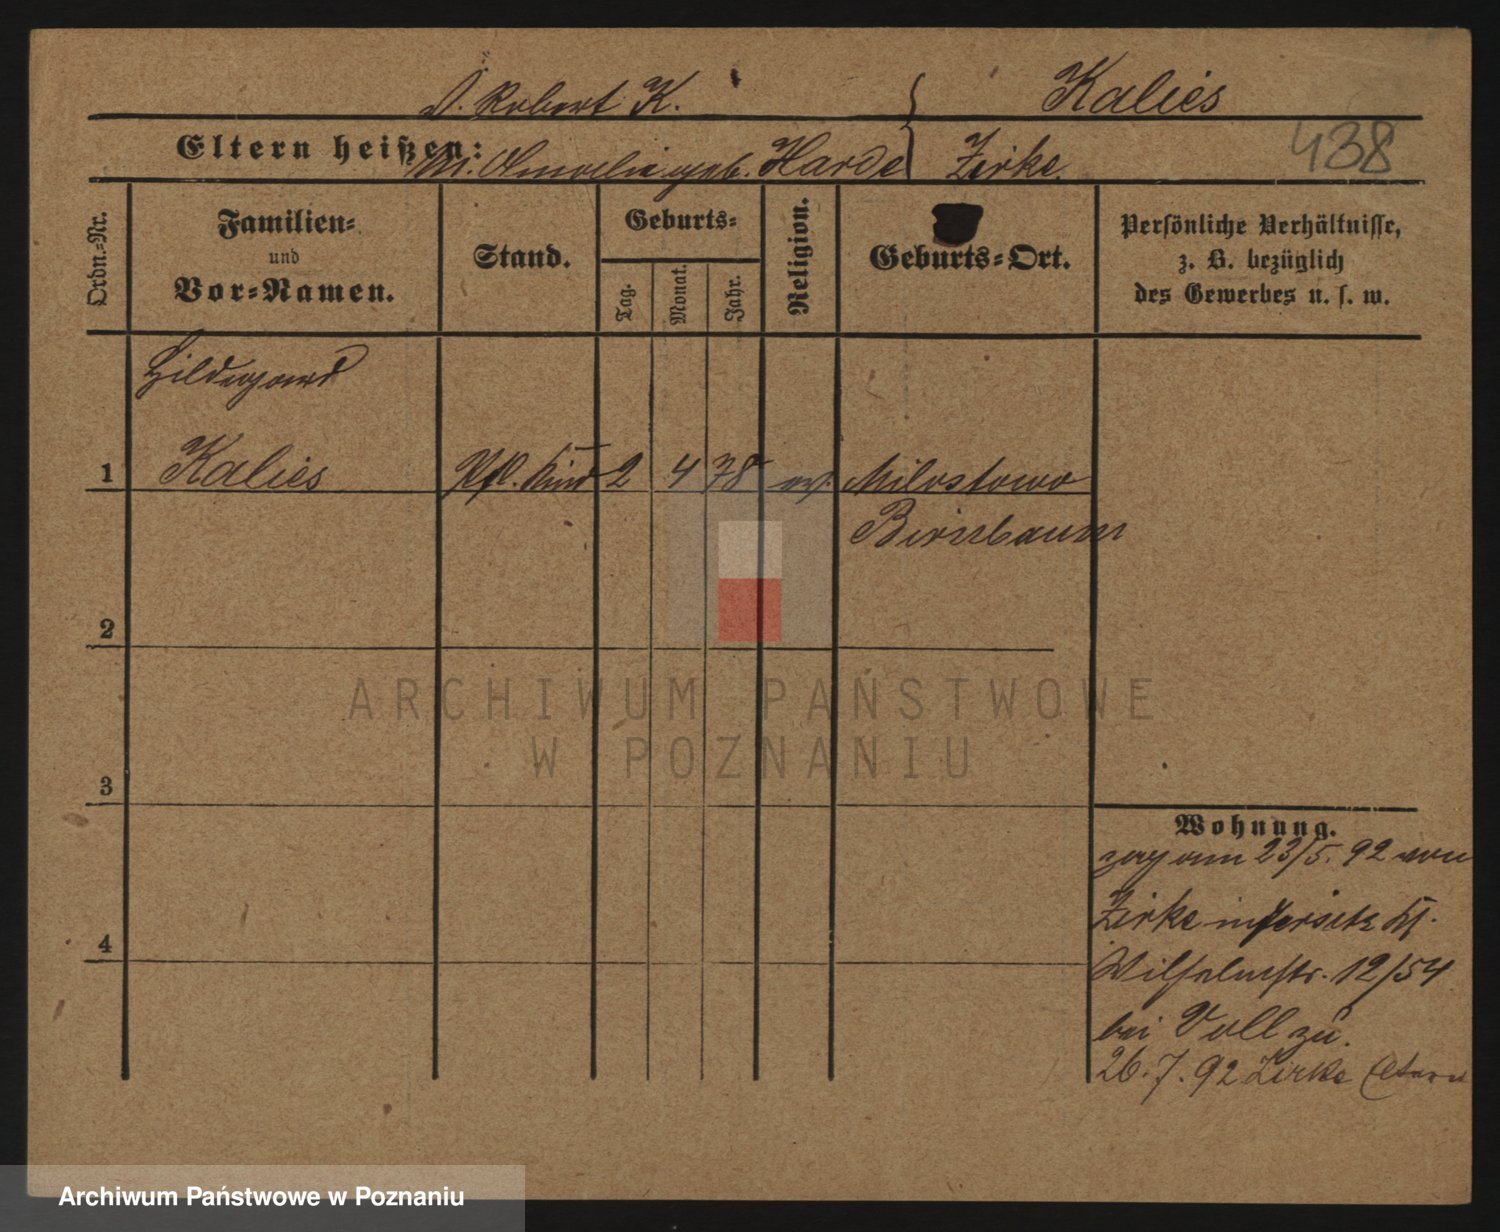 V. Robert K. Kalies
438
Eltern heißen: M. Amalie geb. Harde Zirke.
Ordn.-Nr.
Familien-
und
Vor-Namen.
Stand.
Geburts-
Tag.
Monat.
Jahr.
Religion.
Geburts-Ort.
Persönliche Verhältnisse,
z. B. bezüglich
des Gewerbes u. s. w.
Hildegard
1 Kalies Pfl. Kind 2 4 78 ev. Milostowo
Birnbaum
2
3
4
Wohnung.
zog am 23/5. 92 von
Zirke
Wilhelmstr. 12/54
bei Voll zu.
26. 7. 92 Zirke
ARCHIWUM PAŃSTWOWE
W POZNANIU
Archiwum Państwowe w Poznaniu